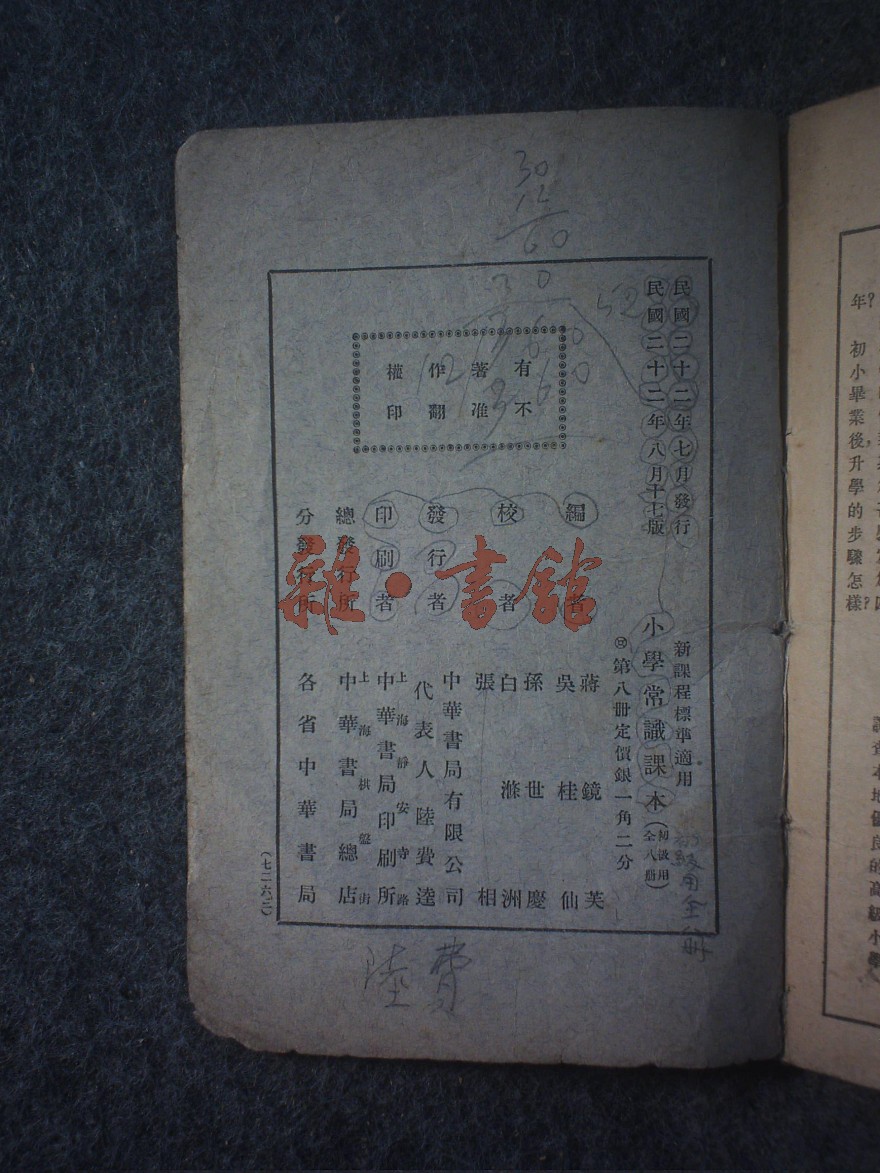 民國二十二年七月發行
民國二十二年八月十七版
新課程標準適用
小學常識課本(初級用全八册)
第八冊定價銀一角二分
有著作權
不准翻印
編者
蔣鏡芙
吳桂仙
校者
孫世慶
白滌洲
張相
發行者
中華書局有限公司
代表人陸費逵
印刷者
上海靜安寺路
中華書局印刷所
總發行所
上海棋盤街
中華書局總店
分發行所
各省中華書局
(七二六三)
30
12
60
12
初級用全八册
陸費
雜·書館
年?
初小畢業後,升學的步驟怎樣?
本地優良的高級小學